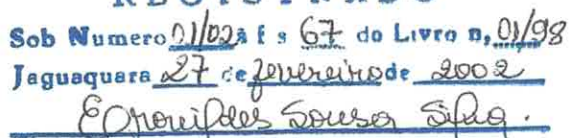 Sob Numero 01/02 à f s 67 do Livro n, 01/98
Jaguaquara 27 de fevereiro de 2002
Sousa Silva.